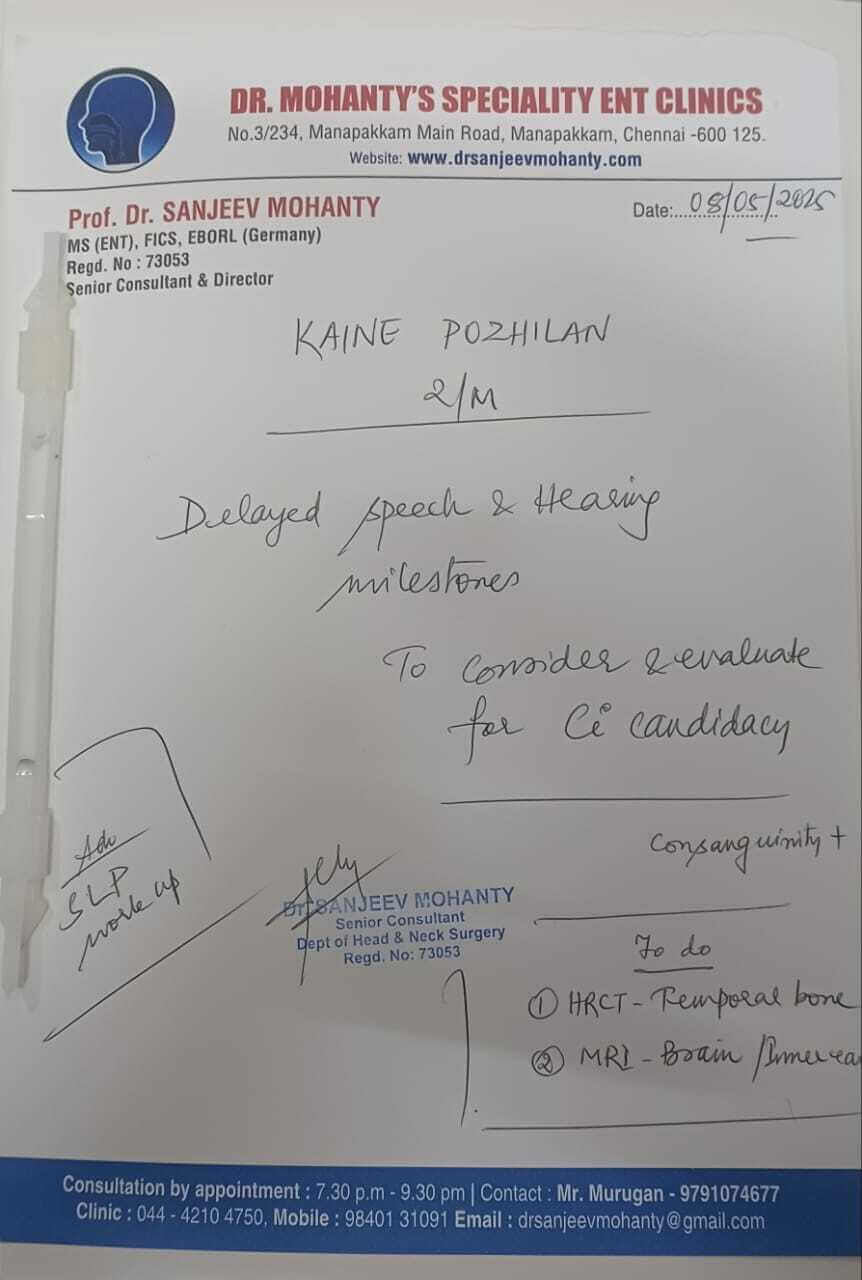 DR. MOHANTY'S SPECIALITY ENT CLINICS
No.3/234, Manapakkam Main Road, Manapakkam, Chennai -600 125.
Website: www.drsanjeevmohanty.com
Prof. Dr. SANJEEV MOHANTY
MS (ENT), FICS, EBORL (Germany)
Regd. No : 73053
Senior Consultant & Director
Date:....08/05/2025
KAINE POZHILAN
2/M
Delayed speech & Hearing
milestones
To consider & evaluate
for Ci candidacy
Consanguinity +
Adv
SLP
work up
Dr. SANJEEV MOHANTY
Senior Consultant
Dept of Head & Neck Surgery
Regd. No: 73053
To do
① HRCT - Temporal bone
② MRI - Brain /Innerea
Consultation by appointment : 7.30 p.m - 9.30 pm | Contact : Mr. Murugan - 9791074677
Clinic : 044 - 4210 4750, Mobile : 98401 31091 Email : drsanjeevmohanty@gmail.com